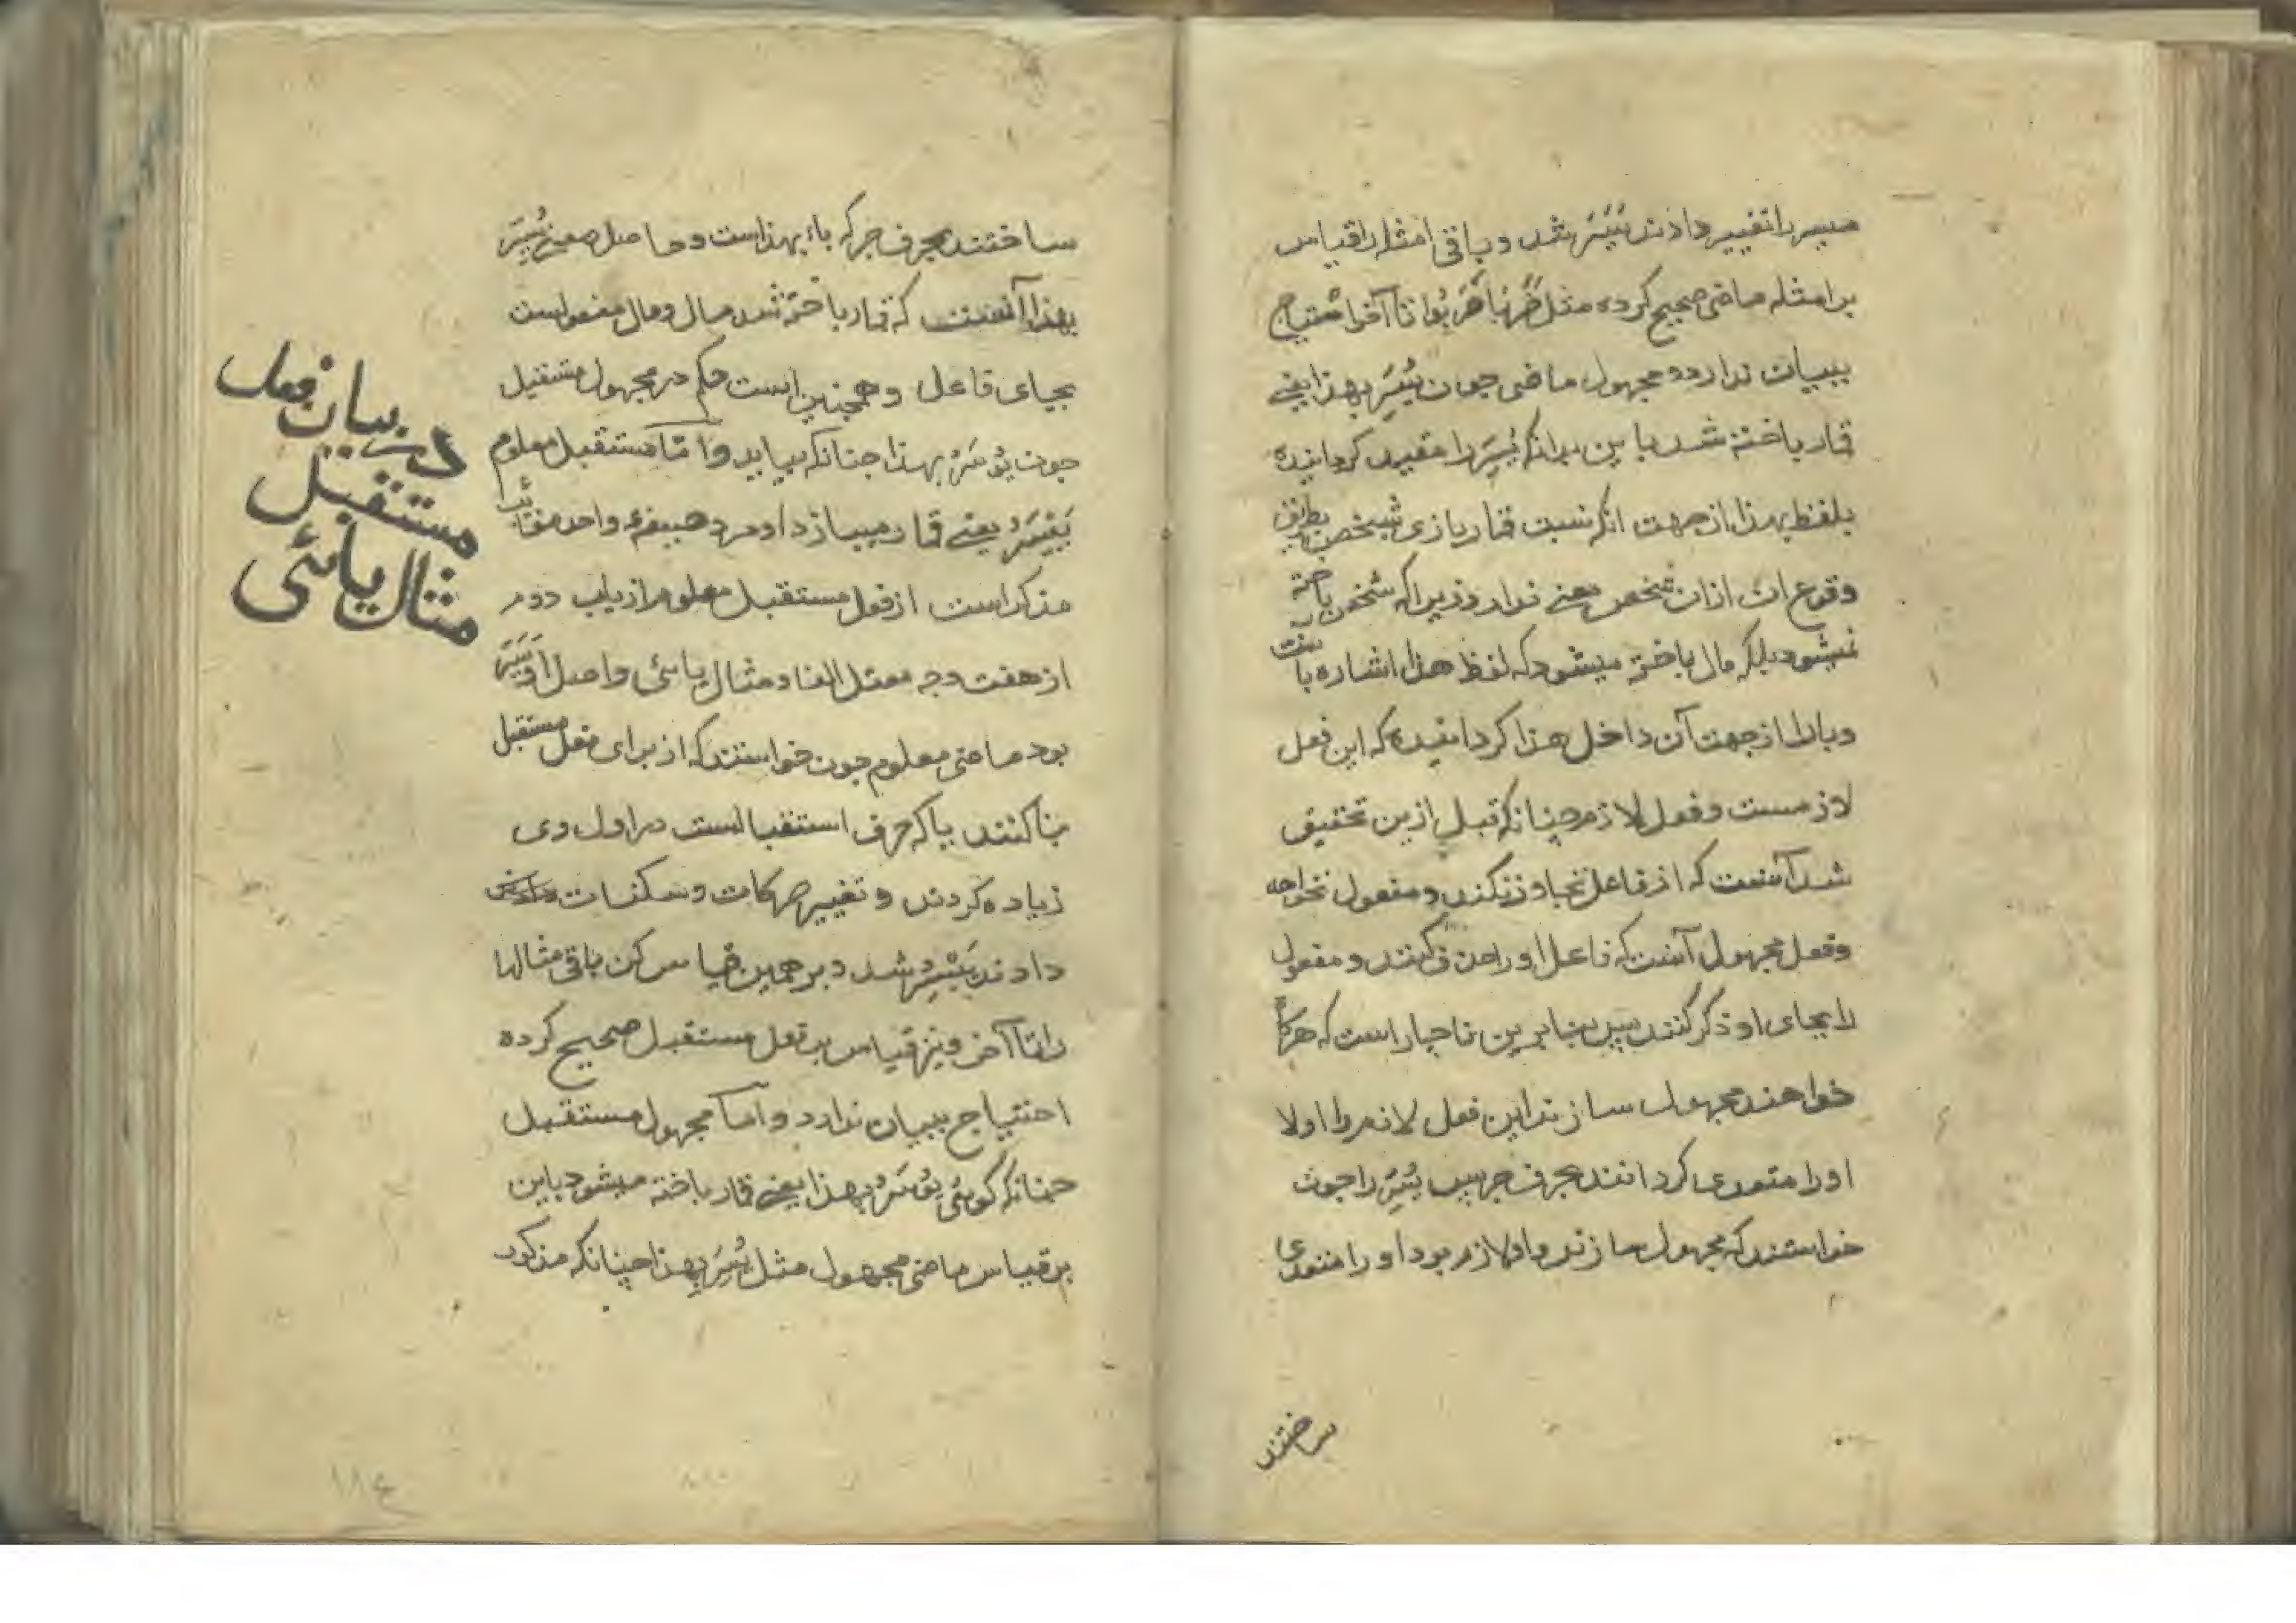 میسر را تغییر دادند یَسَرَ شد و باقی امثله را قیاس
بر امثله ماضی صحیح کرده مثل ضَرَبَا ضَرَبُوا تا آخر احتیاج
ببیان ندارد و مجهول ماضی چون یُسِرَ بهذا یعنی
قمار باخته شد باین بدانکه یُسِرَ را مقید کردانیده
بلفظ بهذا از جهت انکه نسبت قمار بازی بشخص بطریق
وقوع ان از ان شخص معنی ندارد زیرا که شخص باخته
نمیشود بلکه مال باخته میشود که لفظ هذا اشاره بآنست
وبا را از جهت آن داخل هذا کردانیده که این فعل
لازمست و فعل لازم چنانکه قبل ازین تحقیق
شد آنست که از فاعل تجاوز نکند و مفعول نخواهد
وفعل مجهول آنست که فاعل او را حذف کنند و مفعول
را بجای او ذکر کنند پس بنابرین ناچار است که هرکاه
خواهند مجهول سازند این فعل لازم را اولا
او را متعدی کردانند بحرف جر پس یَسَرَ را چون
خواستند که مجهول سازند و او لازم بود او را متعدی
ساختند
ساختند بحرف جر که باء بهذاست و حاصل معنی یُسِرَ
بهذا آنست که قمار باخته شد مال و مال مفعولست
بجای فاعل وهمچنین است حکم در مجهول مستقبل
چون یُوسَرُ بهذا چنانکه بیاید وامّا مستقبل معلوم
یَیْسِرُ یعنی قمار میبازد او مرد صیغهٔ واحد مغائب
مذکر است از فعل مستقبل معلوم از باب دوم
از هفت وجه معتل الفا و مثال یائی و اصل او یَسَرَ
بود ماضی معلوم چون خواستند که از برای فعل مستقبل
بنا کنند یا که حرف استقبالست در اول وی
زیاده کردند و تغییر حرکات وسکنات
دادند یَیْسِرُ شد و بر همین قیاس کن باقی مثالها
را تا آخر و نیز قیاس بر فعل مستقبل صحیح کرده
احتیاج ببیان ندارد و امّا مجهول مستقبل
چنانکه کوئی یُوسَرُ بهذا یعنی قمار باخته میشود باین
بر قیاس ماضی مجهول مثل یُسِرَ بهذا چنانکه مذکور
در بیان فعل
مستقبل
مثال یائی
١١٤